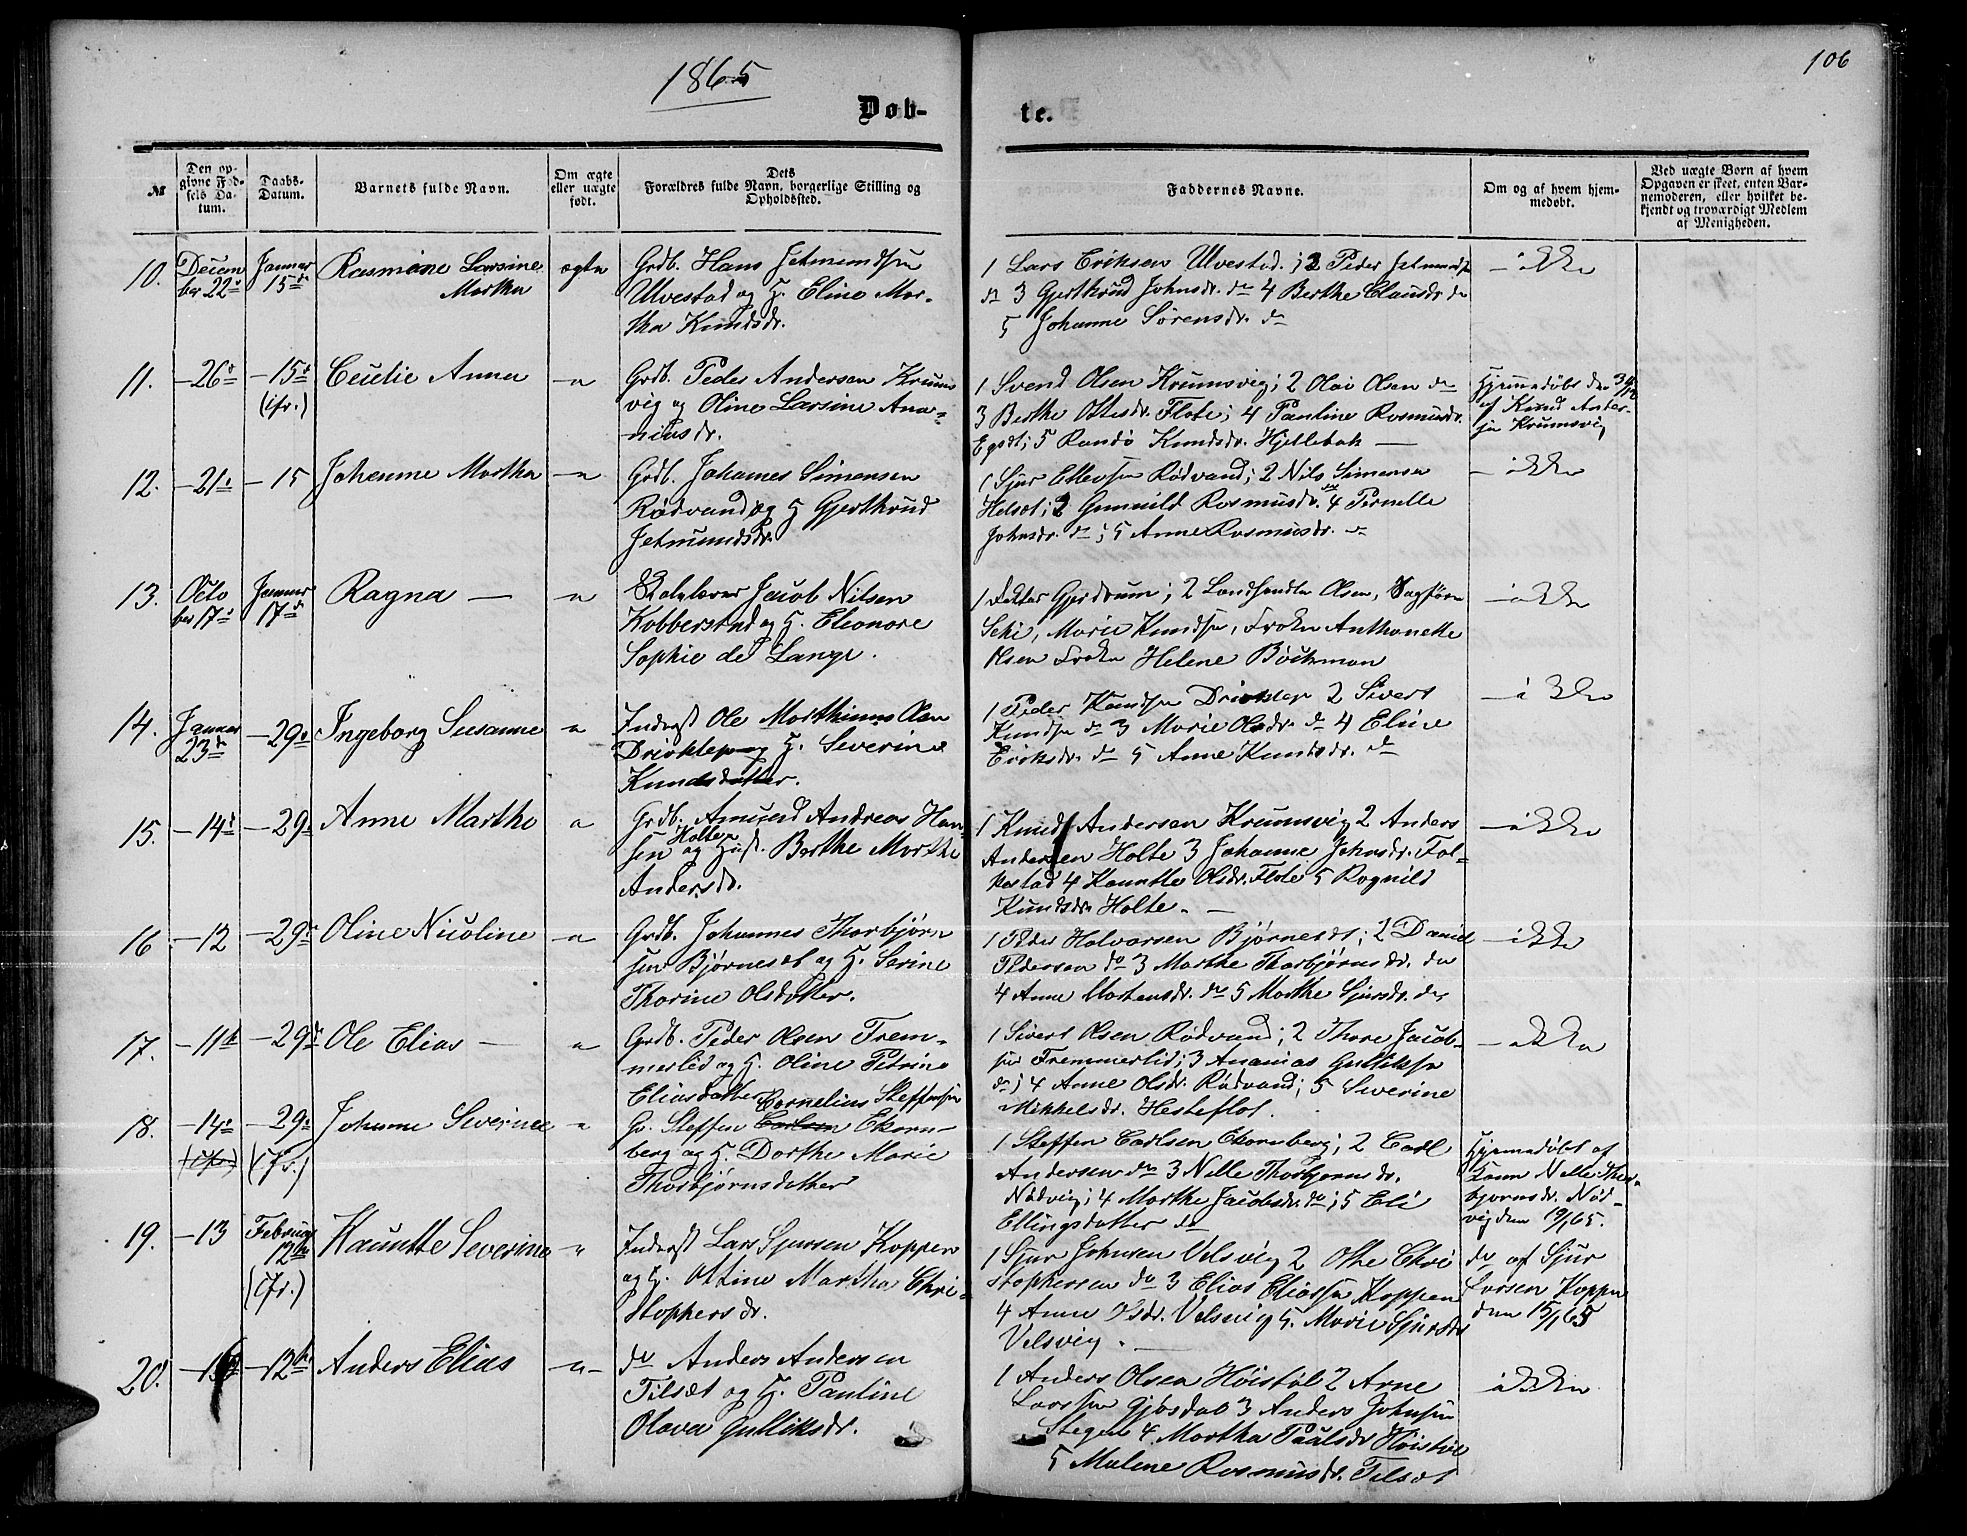 1865
106
Døb-
te.
№
Den op-
givne Fød-
sels Da-
tum.
Daabs-
Datum.
Barnets fulde Navn.
Om ægte
eller uægte
født.
Dets
Forældres fulde Navn, borgerlige Stilling og
Opholdssted.
Faddernes Navne.
Om og af hvem hjem-
medøbt.
Ved uægte Børn af hvem
Opgaven er skeet, enten Bar-
nemoderen, eller hvilket be-
kjendt og troværdigt Medlem
af Menigheden.
10.
Decem
ber 22
Januar
15
Rasmine Larsine
Martha
ægte
Grdb. Hans Jetmundsen
Ulvestad og H. Eline Mar-
tha Knudsdr.
1 Lars Eriksen Ulvestad; 2 Peder Jetmunds
do 3 Gjerthrud Johnsdr. do 4 Berthe Clausdr. do
5 Johanne Sørensdr. do
ikke
11.
-26
-15
(ifr.)
Cecilie Anna
Grdb. Peder Andersen Krums
vig og Oline Larsine Ana-
niasdr.
1 Svend Olsen Krumsvig; 2 Olai Olsen do
3 Berthe Ottesdr. Flote; 4 Pauline Rasmusdr.
5 Knudsdr. Hjellebak
Hjemmedøbt den
af Knud Ander-
sen Krumsvig
12.
-21
-15
Johanne Martha
Grdb. Johannes Simensen
Rødvand og H Gjerthrud
Jetmundsdr.
1 Sjur Ellevsen Rødvand; 2 Nils Simensen
Helset; 3 Gunnild Rasmusdr. do 4 Pernelle
Johnsdr. do; 5 Anne Rasmusdr. do
ikke
13.
Octo
ber 17
Januar
17
Ragna
Jacob Nilsen
Kobberstad og H. Eleonore
Sophie de Lange.
1 Gjerdrum; 2 Landhandler Olsen, Sagfører
Marie Knudsen, Frøken Anthonette
Olsen Frøken Helene Böckman
ikke
14.
Januar
23
-29
Ingeborg Susanne
Inderst Ole Marthinus Olsen
Drivklep og H. Severine
Knudsdatter.
1 Peder Knudsen Drivklep 2 Sivert
Knudsen do 3 Marie Olsdr. do 4 Eline
Eriksdr. do 5 Anne Knudsdr. do
ikke
15.
-14
-29
Anne Marthe
Grdb. Amund Andreas Han-
sen Holte og Hust. Berthe Marthe
Andersdr.
1 Knud Andersen Krumsvig 2 Anders
Andersen Holte 3 Johanne Johnsdr. Fol-
kestad 4 Olsdr. Flote 5 Ragnild
Knudsdr. Holte.
ikke
16
-12
-29
Oline Nicoline
Grdb. Johannes Thorbjørn
sen Bjørneset og H. Serine
Thorine Olsdatter.
1 Peder Halvorsen Bjørneset; 2 Daniel
Pedersen do 3 Marthe Thorbjørnsdr. do
4 Anne Mortensdr. do 5 Marthe Sjursdr. do
ikke
17.
-11
-29
Ole Elias
Grdb. Peder Olsen Frem-
merlid og H. Oline Petrine
Eliasdatter
1 Sivert Olsen Rødvand; 2 Thore Jacob-
sen Fremmerlid; 3 Ananias Gulliksen
do; 4 Anne Olsdr. Rødvand; 5 Severine
Mikkelsdr. Hesteflot.
ikke
18.
-14
(ifr.)
-29
(ifr.)
Johanne Severine
Cornelius Steffensen
Gr. Steffen Carlsen Ekorn-
berg og H. Dorthe Marie
Thorbjørnsdatter
1 Steffen Carlsen Ekornberg; 2 Carl
Andersen do 3 Nelle Thorbjørnsdr.
Nødvig; 4 Marthe Jacobsdr. do; 5 Eli
Ellingsdatter do
Hjemmedøbt af
Kone Nelle Thor-
bjørnsdr. Nød-
vig den 19/1 65.
19.
-13
Februar
12
(ifr.)
Severine
Inderst Lars Sjursen Koppen
og H. Oltine Martha Chri-
stophersdr.
1 Sjur Johnsen Velsvig 2 Ole Chri
stophersen do 3 Elias Eliassen Koppen
4 Anne Olsdr. Velsvig 5. Marie Sjursdr
Velsvig.
do af Sjur
Larsen Koppen
den 15/1 65
20.
-12
Anders Elias
do Anders Andersen
Tilset og H. Pauline
Olava Gulliksdr.
1 Anders Olsen Høistøl 2 Arne
Larssen Gjøsdal 3 Anders Johnsen
4 Martha Paulsdr. Høistøl
5 Malene Rasmusdr. Tilset
ikke